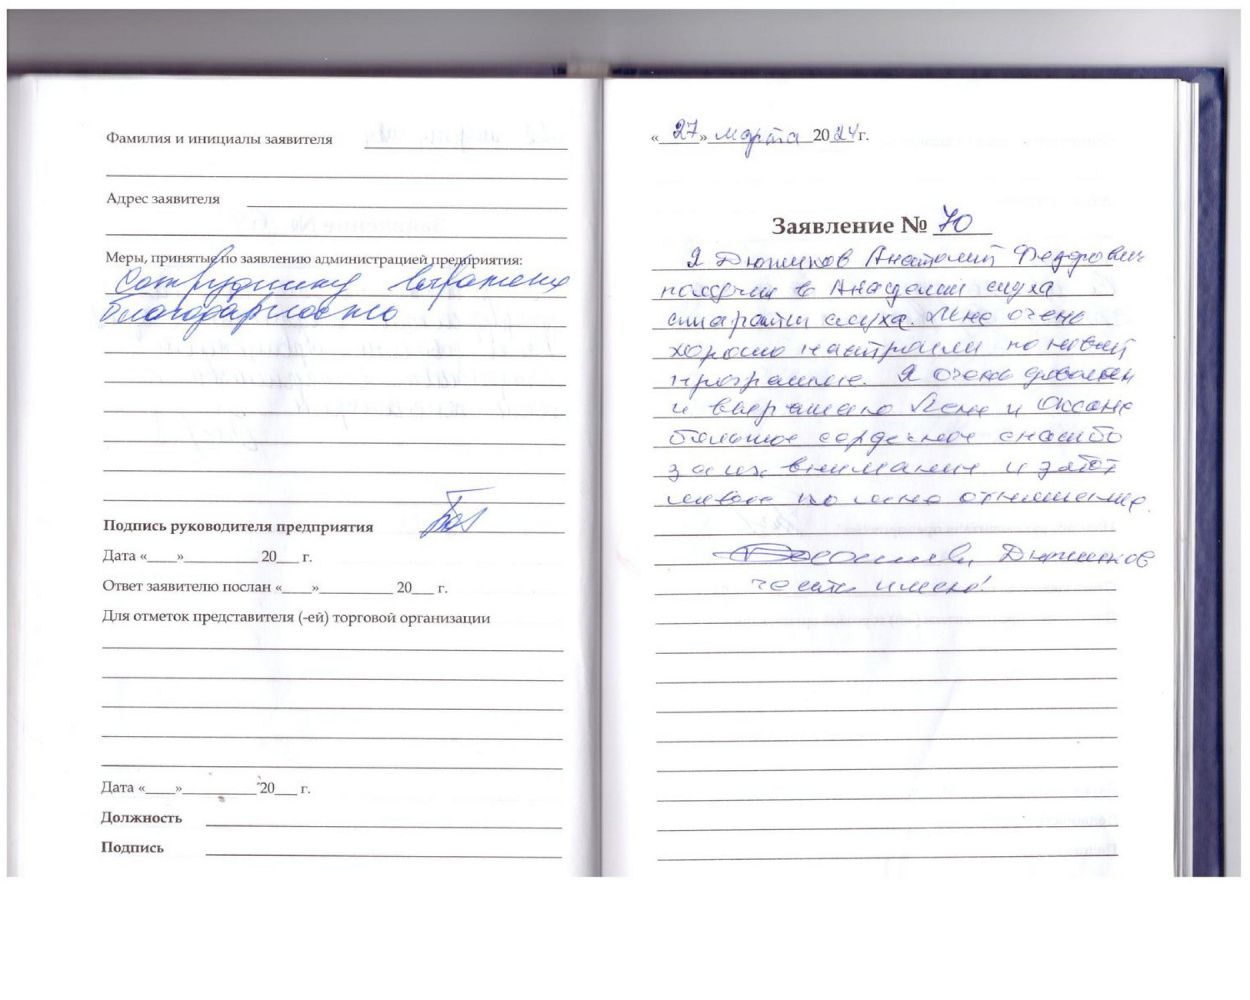 Фамилия и инициалы заявителя
Адрес заявителя
Меры, принятые по заявлению администрацией предприятия:
Сотруднику выражена
благодарность
Подпись руководителя предприятия
Дата «____»__________ 20___ г.
Ответ заявителю послан «____»__________ 20___ г.
Для отметок представителя (-ей) торговой организации
Дата «____»__________ 20___ г.
Должность
Подпись
«27» марта 2024 г.
Заявление № 70
Я Анатолий Федорович
в Академии слуха
слуха. Мне очень
хорошо настроили по новой
программе. Я очень доволен
и выражаю Лене и Оксане
большое сердечное спасибо
за их внимание и
ко мне отношение.
честь имею!